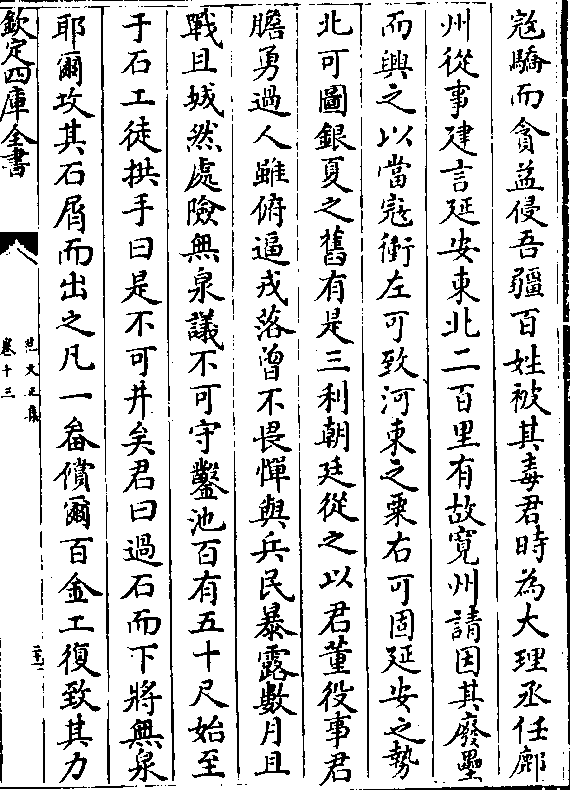 寇驕而貪益侵吾疆百姓被其毒君時為大理丞任鄜
州從事建言延安東北二百里有故寛州請因其廢壘
而興之以當寇衝左可致河東之粟右可固延安之勢
北可圖銀夏之舊有是三利朝廷從之以君董役事君
膽勇過人雖俯逼戎落曽不畏憚與兵民暴露數月且
戰且城然處險無泉議不可守鑿池百有五十尺始至
于石工徒拱手曰是不可井矣君曰過石而下將無泉
耶爾攻其石屑而出之凡一畚償爾百金工復致其力
欽定四庫全書
范文正集
卷十三